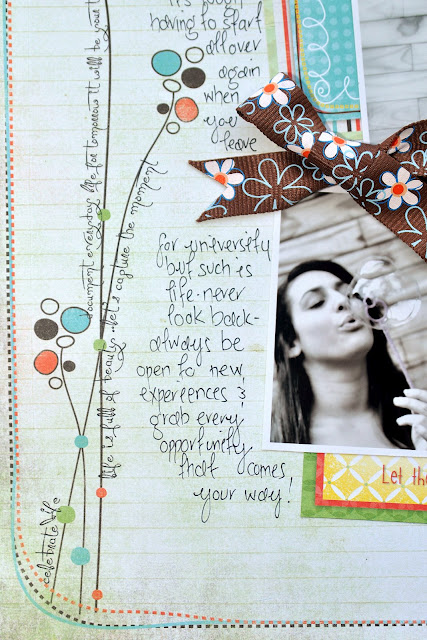 it's
having to start
all over
again
when
you
leave
for university
but such is
life-never
look back-
always be
open to new
expereinces &
grab every
opportunity
that comes
your way!
document everyday life for tomorrow it will be your
life is full of beauty. let's capture the moment
celebrate life
Let the